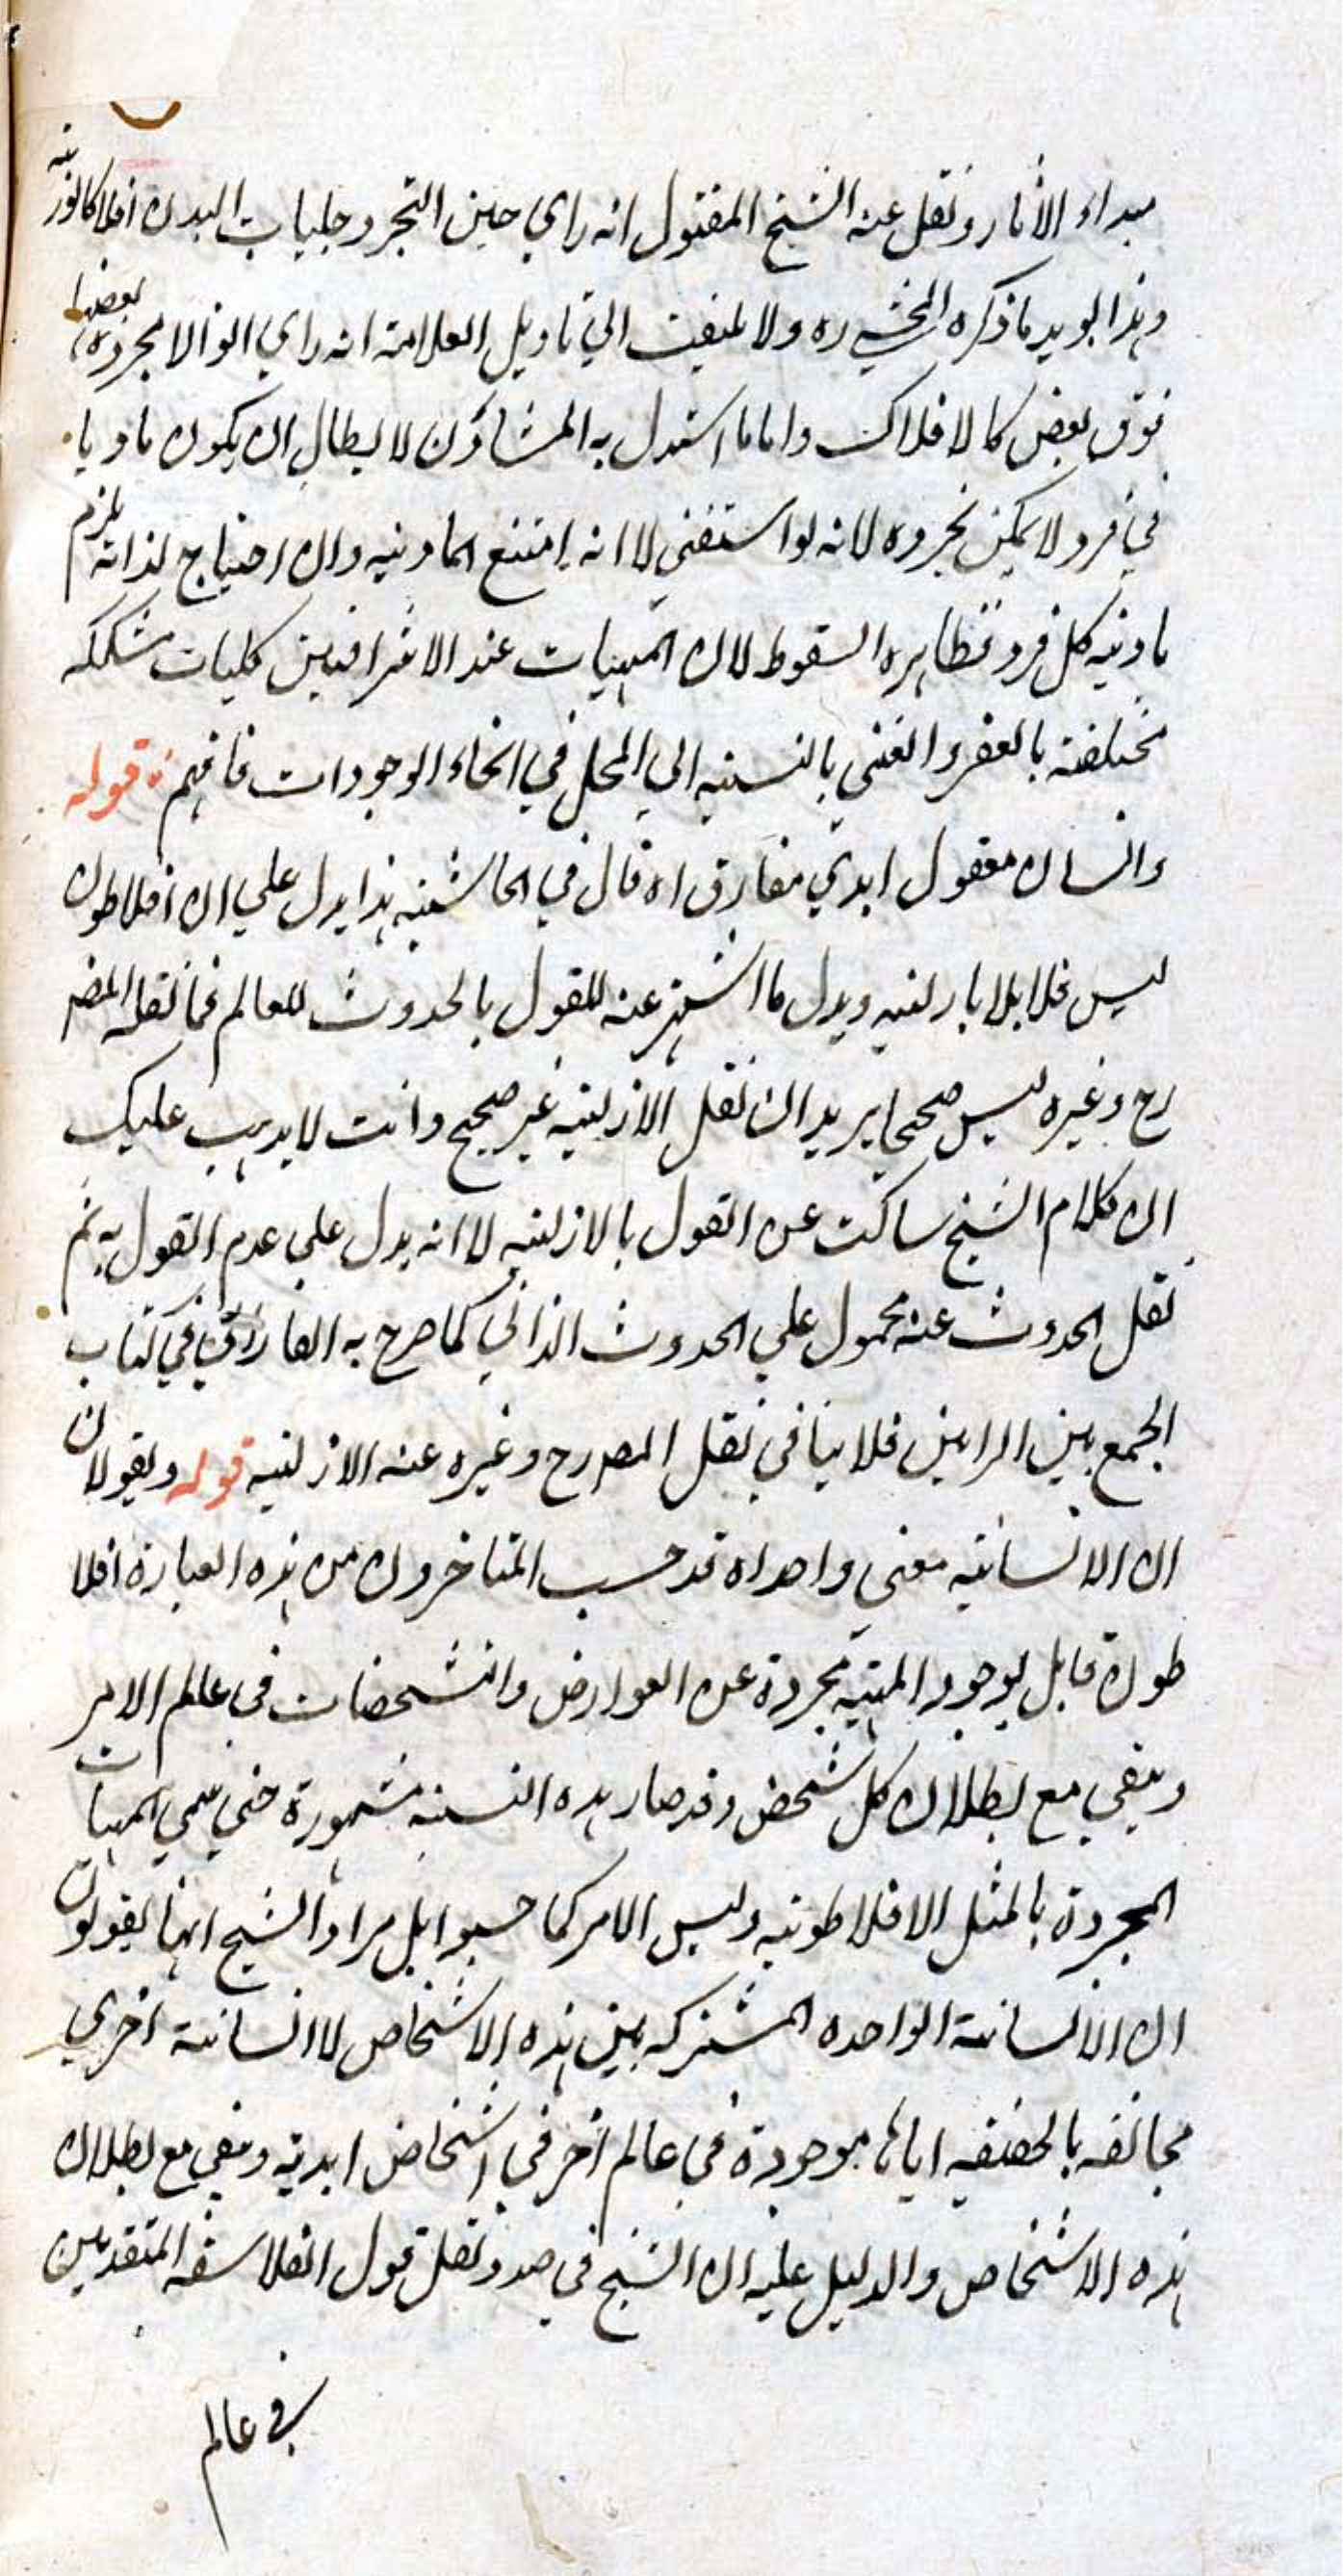 مبداء الأثار ونقل عنه الشيخ المقتول انه راي حين التجرد جلباب البدن افلاكا نورية
وهذا يويد ما ذكره المحشي ره ولا يلتفت الي تاويل العلامة انه راي انوارا مجردة بعضها
فوق بعض كالافلاك واما ما استدل به المشاؤن لابطال ان يكون ماديا
في فرد لا يمكن تجرده لانه لو استغني لذاته امتنع المادية وان احتياج لذاته يلزم
مادية كل فرد فظاهره السقوط لان المهيات عند الاشراقيين كليات مشككه
مختلفة بالفقر والغني بالنسبه الي المحل في انحاء الوجودات فافهم قوله
وانسان معقول ابدي مفارق اه قال في الحاشيه هذا يدل علي ان افلاطون
ليس قائلا بازليته ويدل ما اشتهر عنه للقول بالحدوث للعالم فما نقله المص
رح وغيره ليس صحيحا يريد ان نقل الازليه غير صحيح وانت لا يذهب عليك
ان كلام الشيخ ساكت عن القول بالازليه لا انه يدل علي عدم القول به ثم
نقل الحدوث عنه محمول علي الحدوث الذاتي كما صرح به الفارابي في كتاب
الجمع بين الرايين فلا ينافي نقل المص رح وغيره عنه الازليه قوله ويقولان
ان الانسانيه معني واحد اه قد حسب المتاخرون من هذه العبارة افلا
طون قايل بوجود المهيه مجردة عن العوارض والتشخصات في عالم الامر
ويبقي مع بطلان كل شخص وقد صار هذه النسبه مشهورة حتي سمي المهيات
المجردة بالمثل الافلاطونيه وليس الامر كما حسبوا بل مراد الشيخ انهما يقولون
ان الانسانية الواحده المشتركه بين هذه الاشخاص لا انسانية اخري
مخالفه بالحقيقه اياها موجودة في عالم آخر في اشخاص ابدية ويبقي مع بطلان
هذه الاشخاص والدليل عليه ان الشيخ في صدد نقل قول الفلاسفه المتقدمين
في عالم